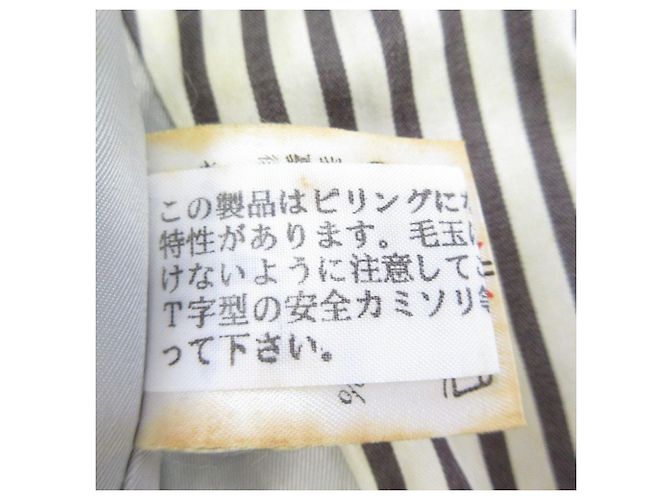 この製品はピリングにな
特性があります。毛玉は
けないように注意してこ
T字型の安全カミソリ等
って下さい。
%